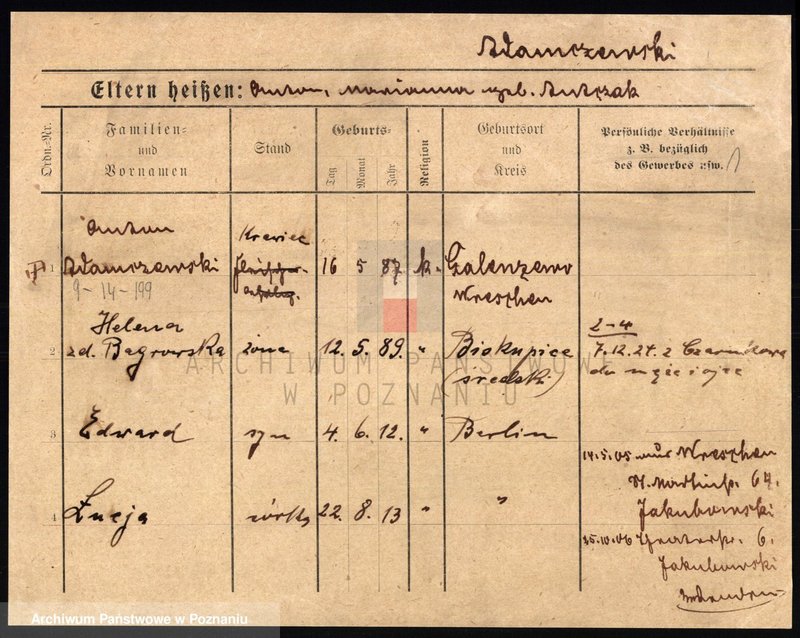 Adamczewski
Eltern heißen: Anton, Marianna geb. Antczak
Ordn.-Nr.
Familien- und Vornamen
Stand
Geburts-
Tag
Monat
Jahr
Religion
Geburtsort und Kreis
Persönliche Verhältnisse z. B. bezüglich des Gewerbes usw.
1 Anton Adamczewski Krawiec 16 5 87 k.
Wreschen
9-14-199
2 Helena zd. Bagrowska żona 12. 5. 89. " Biskupice (średzki)
2-4
7.12.24. z Czarnikowa
do męża i ojca
3 Edward syn 4. 6. 12. " Berlin
4 Łucja córka 22. 8. 13 " "
14.5.05 aus Wreschen
St. Martinstr. 67.
Jakubowski
15.10.06 6.
Jakubowski
ARCHIWUM PAŃSTWOWE
W POZNANIU
Archiwum Państwowe w Poznaniu